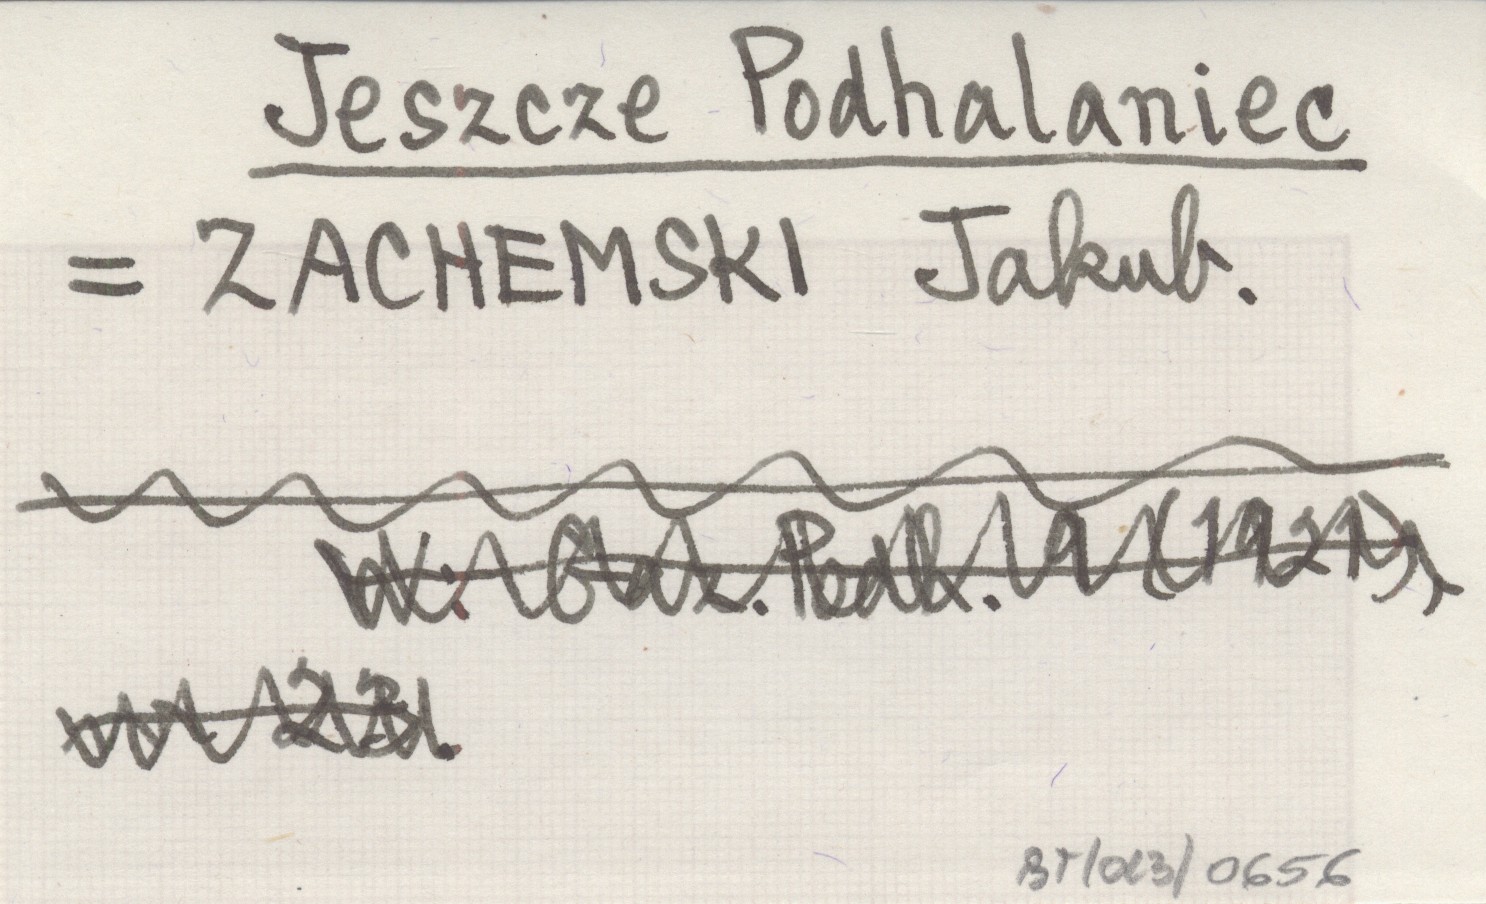 Jeszcze Podhalaniec
= ZACHEMSKI Jakub.
W: Gaz. Podh. 9 (1921),
nr 23.
0656